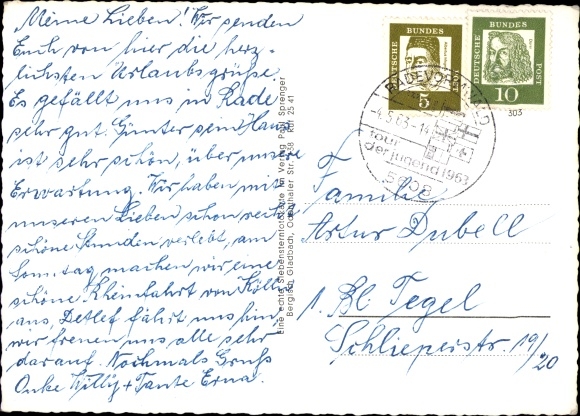 Meine Lieben! Wir senden
Euch von hier die herz-
lichsten Urlaubsgrüße.
Es gefällt uns in Rade
sehr gut. Günter sein Haus
ist sehr schön, über unsere
Erwartung. Wir haben mit
unseren Lieben schon recht
schöne Stunden verlebt, am
Sonntag machen wir eine
schöne Rheinfahrt von Köln
aus, Detlef fährt uns hin
wir freuen uns alle sehr
darauf. Nochmals Gruß
Onke Willy + Tante Erna.
Eine echte Siebensternfotokarte im Verlag Paul Sprenger
Bergisch Gladbach, Odenthaler Str. 38 Ruf 25 41
DEUTSCHE BUNDES POST
5
DEUTSCHE BUNDES POST
10
303
RADEVORMWALD
-4.5.63-14
tour
der jugend 1963
5608
Familie
Artur Dubell
1. Bl. Tegel
Schlieperstr. 19/
20